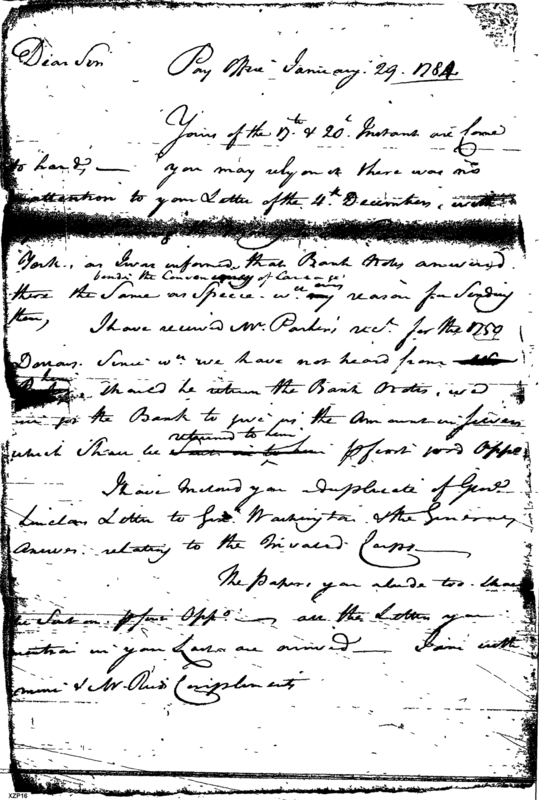 Dear Sir Pay Office January 29. 1784
Yours of the 17th & 20th Instant are Come
to hand, — you may rely on it there was no
attention to your Letter of the 4th December,
York, as I was informed that Bank Notes answered
besides the Conveniency of Carriage
there the Same as Specie wch was my reason for Sending
them, I have received Mr. Parker's rect. for the 1750
Dollars. Since wn. we have not heard from
him should he return the Bank Notes,
the Bank to give us the Amount in
returned to him
which Shall be Sent on to him pr first good Oppo.
I have inclosed you a duplicate of Genl.
Lincolns Letter to Genl. Washington & the Generals
Answer relating to the Invalid Corps —
The Papers you alude too Shall
be Sent on pr first Oppo. — all the Letters you
mention in your Last are arrived — I am with
mine & Mr. Compliments
XZP16